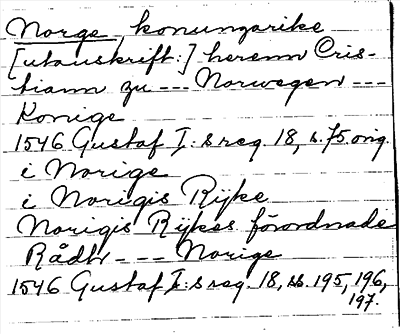 Norge, konungarike
[utanskrift:] herenn Cris-
tiann zu --- Norwegen ---
Konige
1546 Gustaf I:s reg. 18, s. 75 orig.
i Norige
i Norigis Rijke
Norigis Rijkes förordnade
Rådh --- Norige
1546 Gustaf I:s reg. 18, ss. 195, 196,
197.